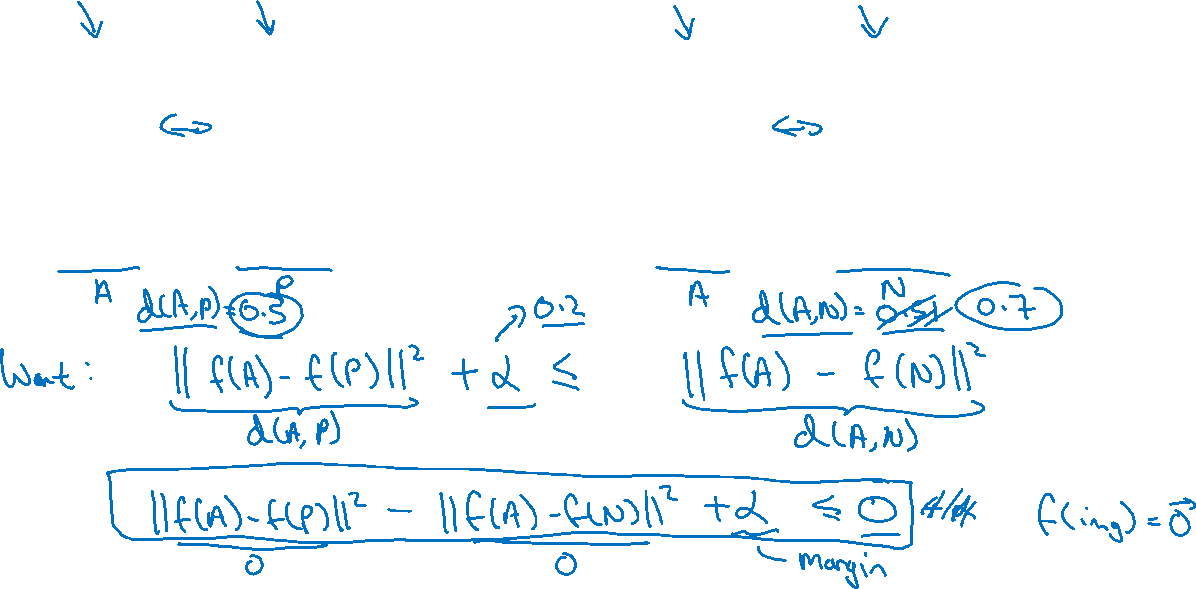 A P A N
d(A,P) = 0.5 0.2 d(A,N) = 0.51 0.7
Want: ||f(A) - f(P)||² + α ≤ ||f(A) - f(N)||²
d(A,P) d(A,N)
||f(A) - f(P)||² - ||f(A) - f(N)||² + α ≤ 0 f(img) = 0⃗
0 0 margin